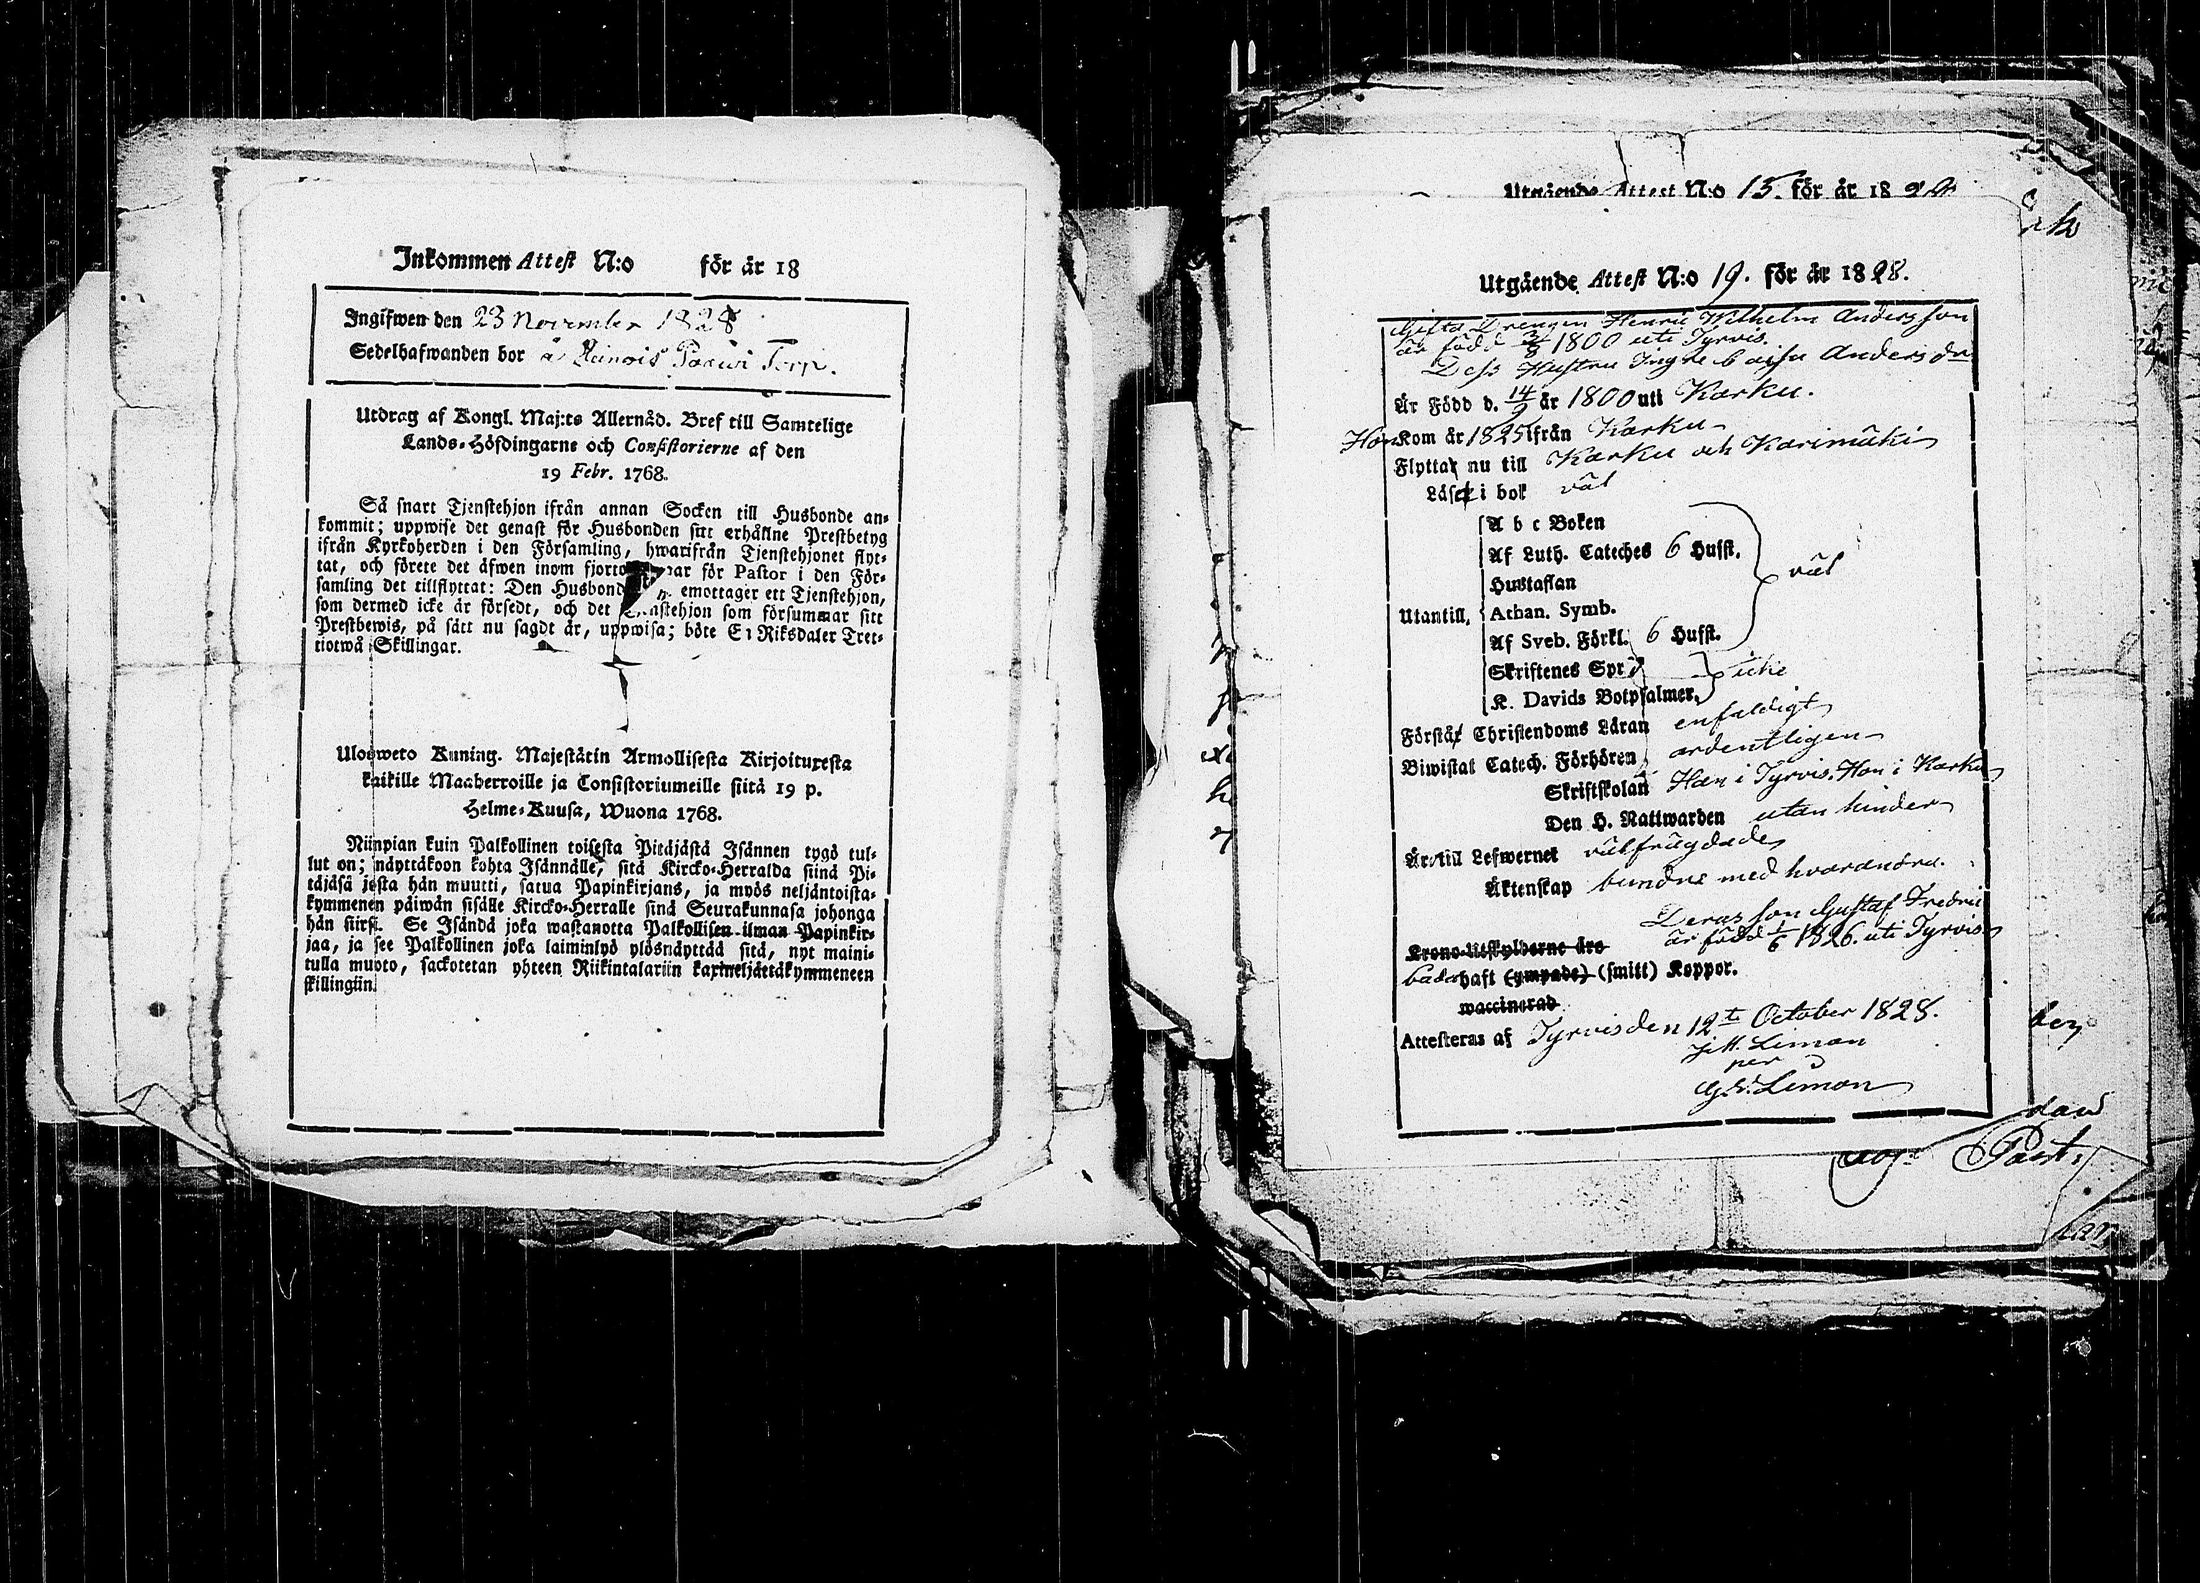 Inkommen Attest N:o för år 18
Ingifwen den 23 November 1828
Sedelhafwanden bor å Heinois Paawi Torp.
Utdrag af Kongl. Maj:ts Allernåd. Bref till Samtelige
Lands-Höfdingarne och Consistorierne af den
19 Febr. 1768.
Så snart Tjenstehjon ifrån annan Socken till Husbonde an-
kommit; uppwise det genast för Husbonden sitt erhållne Prestbetyg
ifrån Kyrkoherden i den Församling, hwarifrån Tjenstehjonet flyt-
tat, och förete det äfwen inom fjorto ar för Pastor i den För-
samling det tillflyttat: Den Husbond emottager ett Tjenstehjon,
som dermed icke är försedt, och det enstehjon som försummar sitt
Prestbewis, på sätt nu sagdt är, uppwisa; böte E1 Riksdaler Tret-
tiotwå Skillingar.
Ulosweto Kuning. Majestätin Armollisesta Kirjoituxesta
kaikille Maaherroille ja Consistoriumeille siitä 19 p.
Helme-Kuusa, Wuona 1768.
Niinpian kuin Palkollinen toisesta Pitäjästä Isännen tygö tul-
lut on; näyttäkoon kohta Isännälle, sitä Kircko-Herralda siinä Pi-
täjäsä josta hän muutti, satua Papinkirjans, ja myös neljäntoista-
kymmenen päiwän sisälle Kircko-Herralle sinä Seurakunnasa johonga
hän siirsi. Se Isändä joka wastanotta Palkollisen ilman Papinkir-
jaa, ja see Palkollinen joka laiminlyö ylösnäyttäd sitä, nyt maini-
tulla muoto, sackotetan yhteen Riikintalariin kaxineljättäkymmeneen
skillingiin.
Utgående Attest N:o 15. för år 18
Utgående Attest N:o 19. för år 1828.
Gifta Drengen Henric Wilhelm Andersson
är född 3/8 1800 uti Tyrvis.
Dess Hustru Ingre Caisa Andersdr
Är Född d. 14/9 år 1800 uti Karku.
Hon Kom år 1825 ifrån Karku
Flyttar nu till Karku och Karimäki
Läser i bok väl
A b c Boken
Af Luth. Cateches 6 Husst.
Hustaflan
väl
Utantill, Athan. Symb.
Af Sveb. Förkl. 6 Husst.
Skriftenes Spr
icke
K. Davids Botpsalmer,
Förstår Christendoms Läran enfaldigt
Biwistat Catech. Förhören ordentligen
Skriftskolan Han i Tyrvis. Hon i Karku
Den H. Nattwarden utan hinder
Äro till Lefwernet välfrägdade
Äktenskap bundne med hvarandra.
Deras son Gustaf Fredric
är född 1/6 1826. uti Tyrvis
Krono-Utskylderne äro
både haft (ympade) (smitt) Koppor.
waccinerad
Attesteras af Tyrvis den 12te October 1828.
Limon
per
Limon